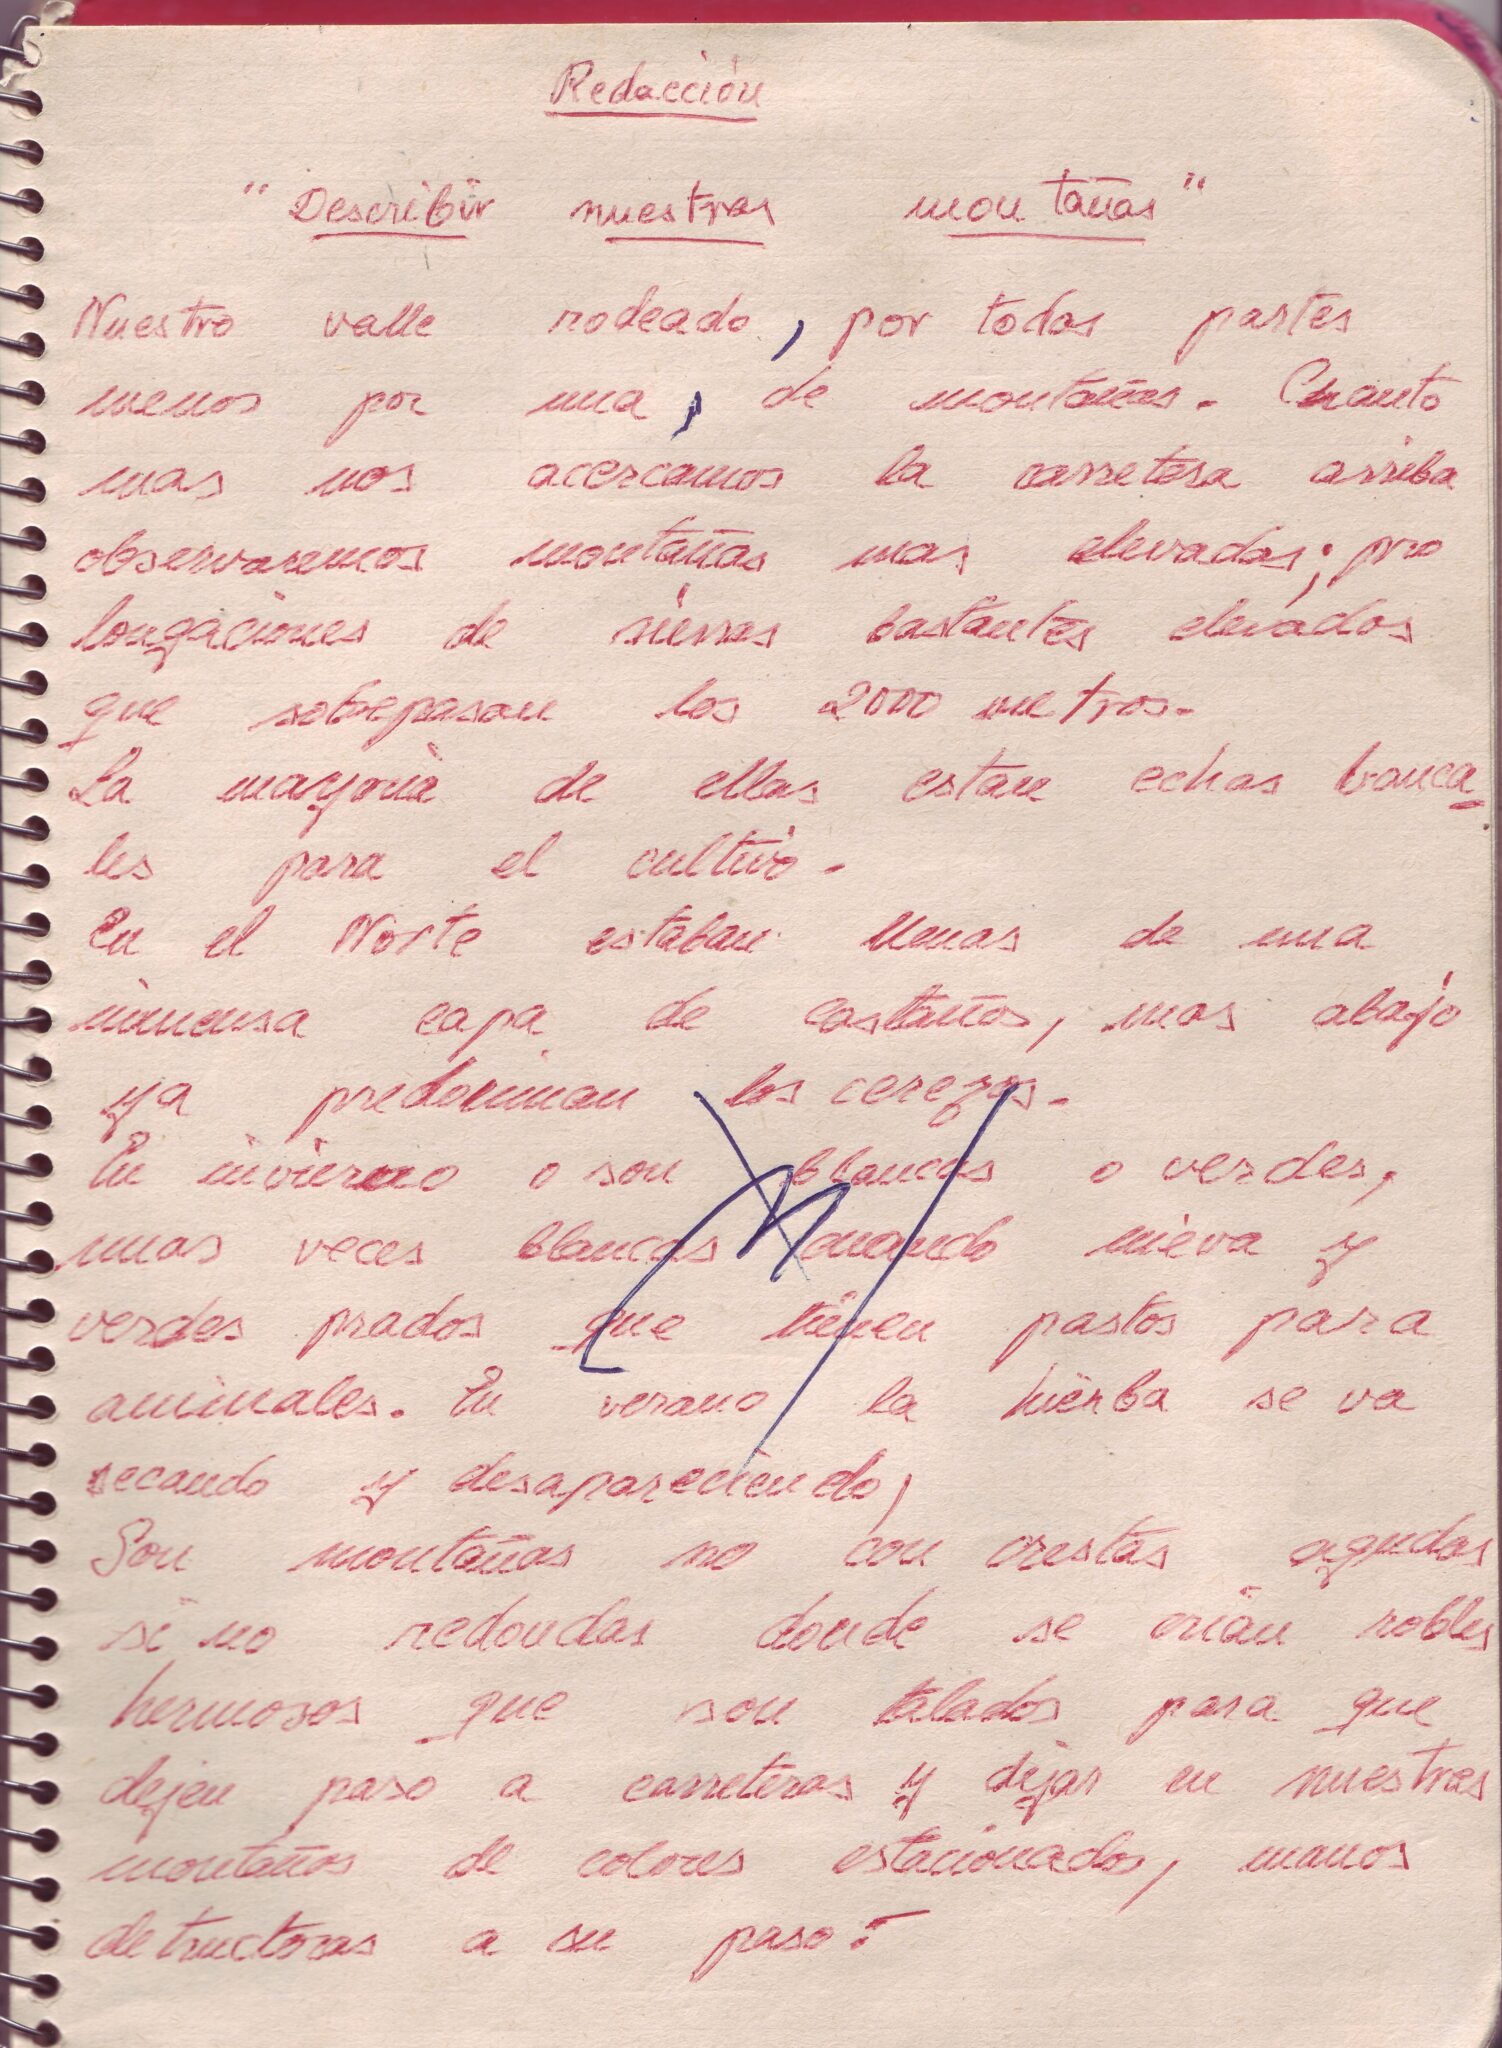 Redacción
"Describir nuestras montañas"
Nuestro valle rodeado, por todas partes
menos por una, de montañas. Cuanto
mas nos acercamos la carretera arriba
observaremos montañas mas elevadas; pro
longaciones de sierras bastantes elevados
que sobrepasan los 2000 metros.
La mayoria de ellas estan echas banca-
les para el cultivo.
En el Norte estaban llenas de una
inmensa capa de castaños, mas abajo
ya predominan los cerezos.
En invierno o son blancas o verdes,
unas veces blancas cuando nieva y
verdes prados que tienen pastos para
animales. En verano la hierba se va
secando y desapareciendo,
Son montañas no con crestas agudas
si no redondas donde se crian robles
hermosos que son talados para que
dejen paso a carreteras y dejar en nuestras
montañas de colores estacionados, manos
detructoras a su paso.